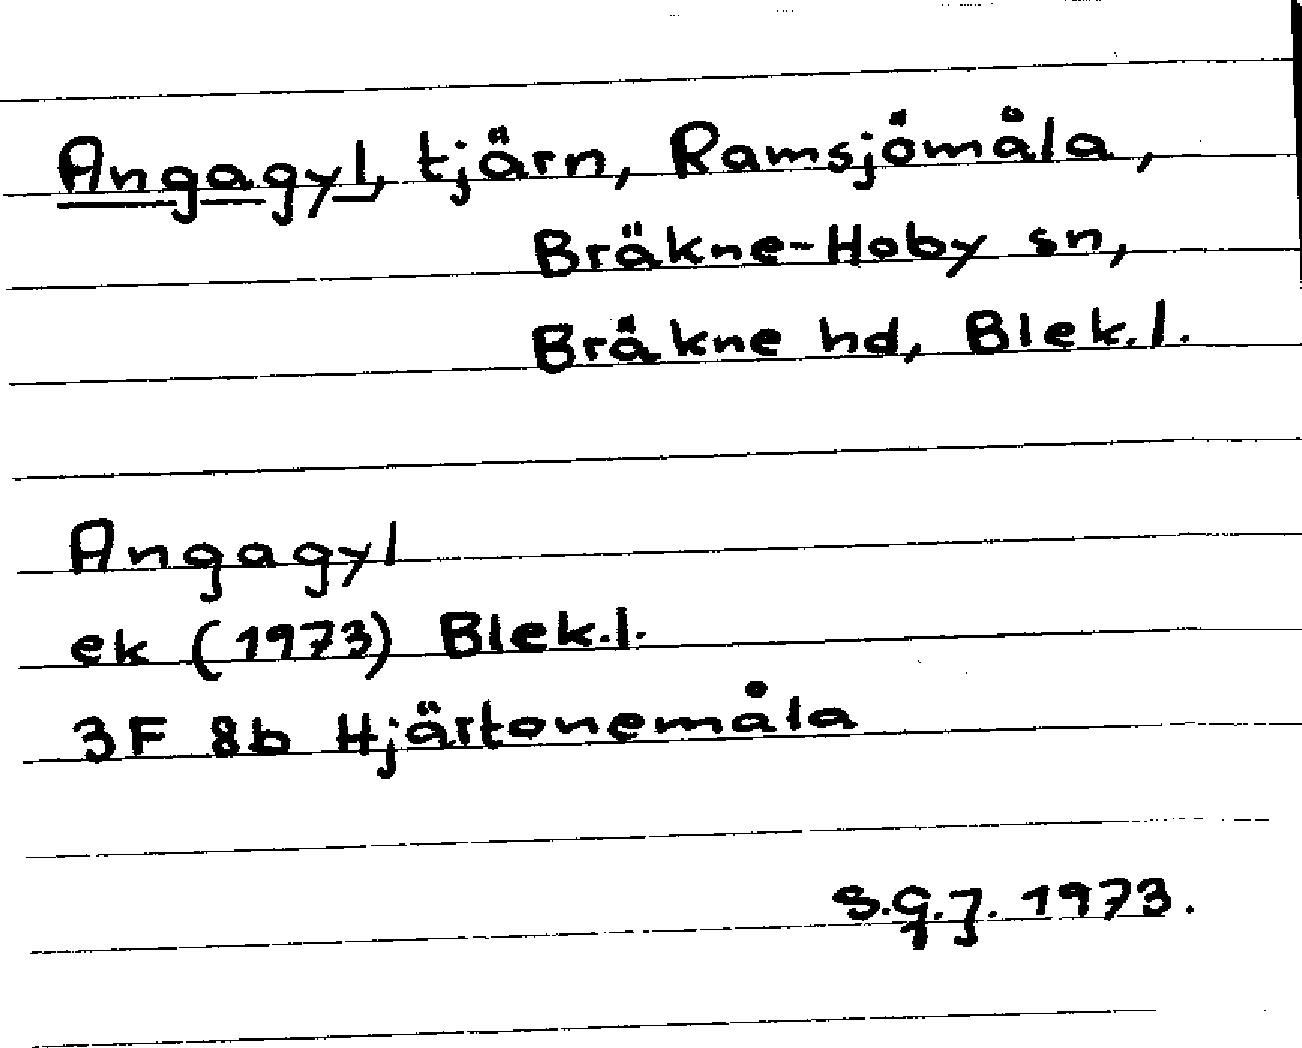 Angagyl, tjärn, Ramsjömåla,
Bräkne-Hoby sn,
Bräkne hd, Blek.l.
Angagyl
ek (1973) Blek.l.
3F 8b Hjärtonemåla
S.G.J. 1973.